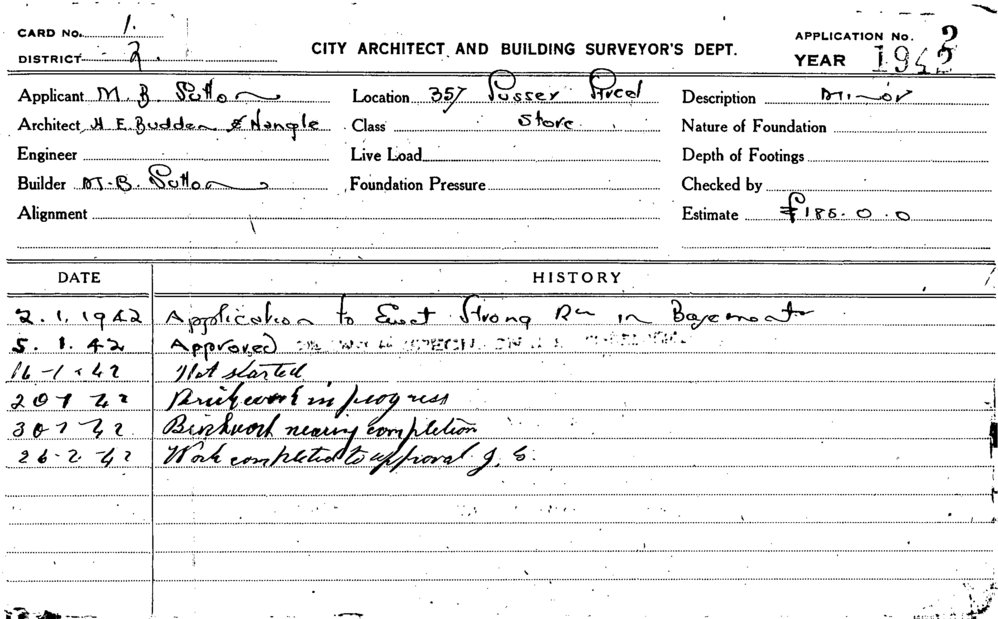 CARD No. 1.
DISTRICT 2.
CITY ARCHITECT AND BUILDING SURVEYOR'S DEPT.
APPLICATION No. 2
YEAR 1942
Applicant M. B. Sutton
Location 357 Sussex Street
Description Minor
Architect H. E. Budden & Nangle
Class Store
Nature of Foundation
Engineer
Live Load
Depth of Footings
Builder M. B. Sutton
Foundation Pressure
Checked by
Alignment
Estimate £185.0.0
DATE HISTORY
2.1.1942 Application to Erect Strong Rm in Basement
5.1.42 Approved
16-1-42 Not started
20 1 42 Brickwork in progress
30 1 42 Brickwork nearing completion
26-2-42 Work completed to approval J. S.